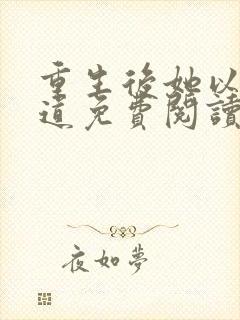 重生後她以
道免費閱讀
夜如夢